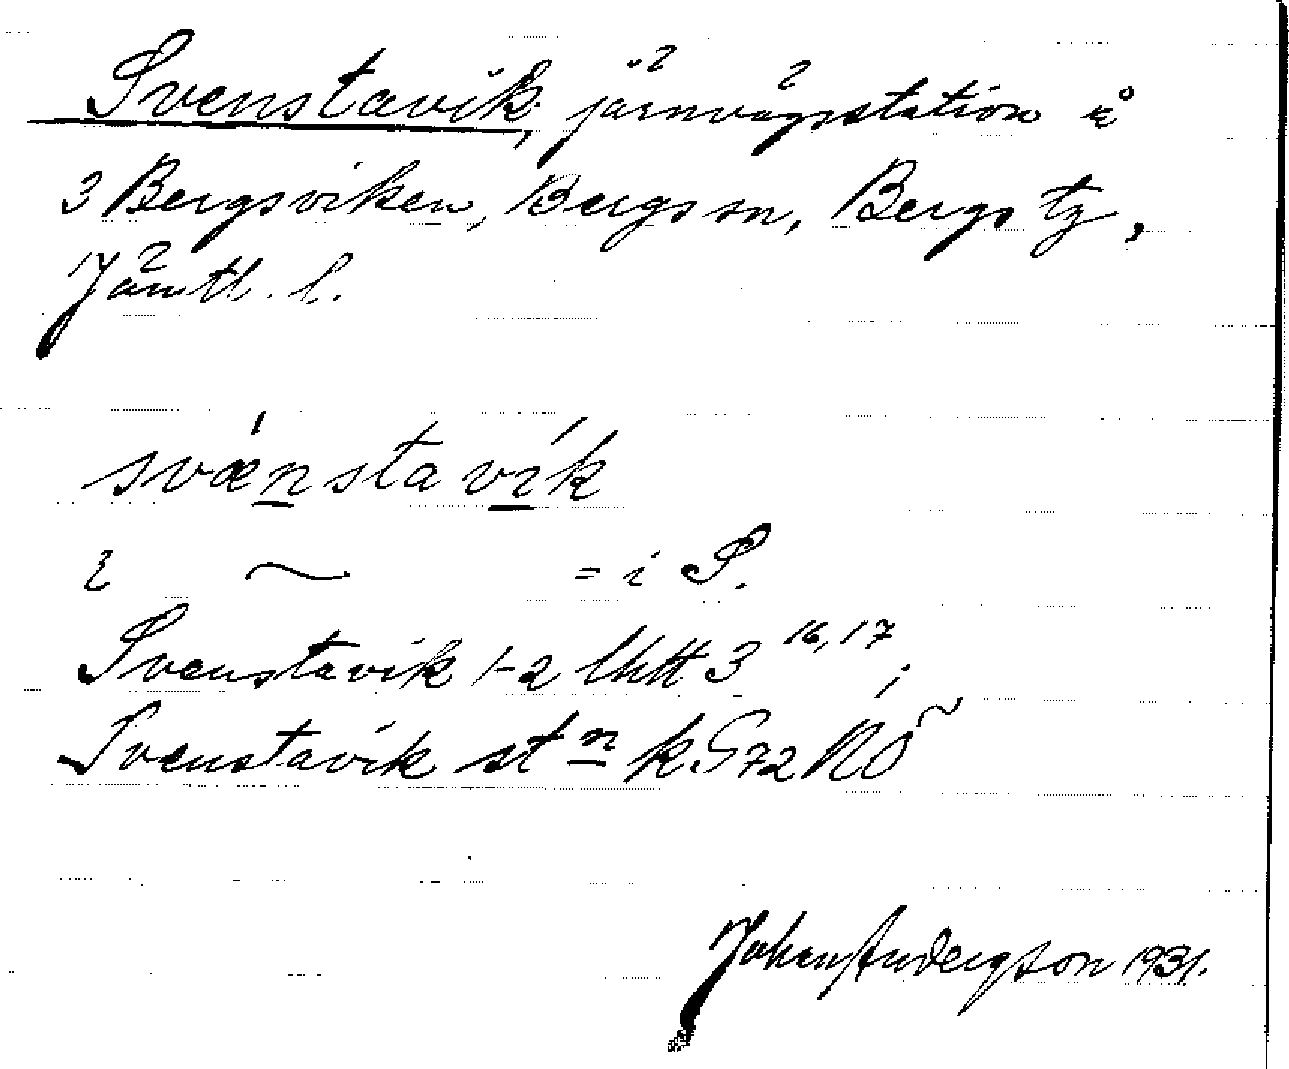 Svenstavik, järnvägsstation å
3 Bergsviken, Bergs sn, Bergs tg,
Jämtl. l.
svænstavik
i ~ = i S.
Svenstavik 1-2 3 16, 17;
Svenstavik st n k G 72 NÖ
Johan Andersson 1931.